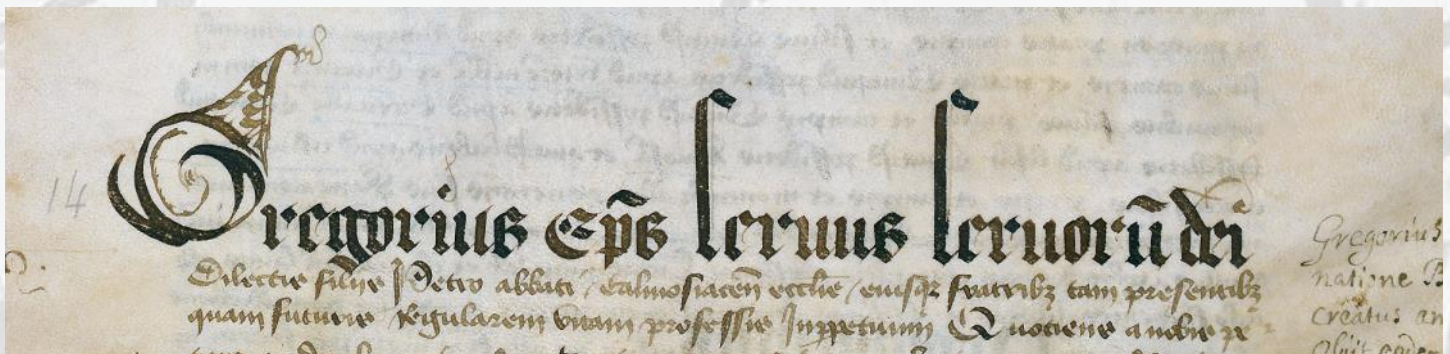 14
Gregorius Ep̃s seruus seruorũ dei
Dilectis filijs Petro abbati / Calmosiaceñ ecclie / eiusq; fratribȝ tam presentibȝ
quam futuris regularem vitam professis Inppetuum Quotiens a nobis pe
Gregorius
natione B
creatus an